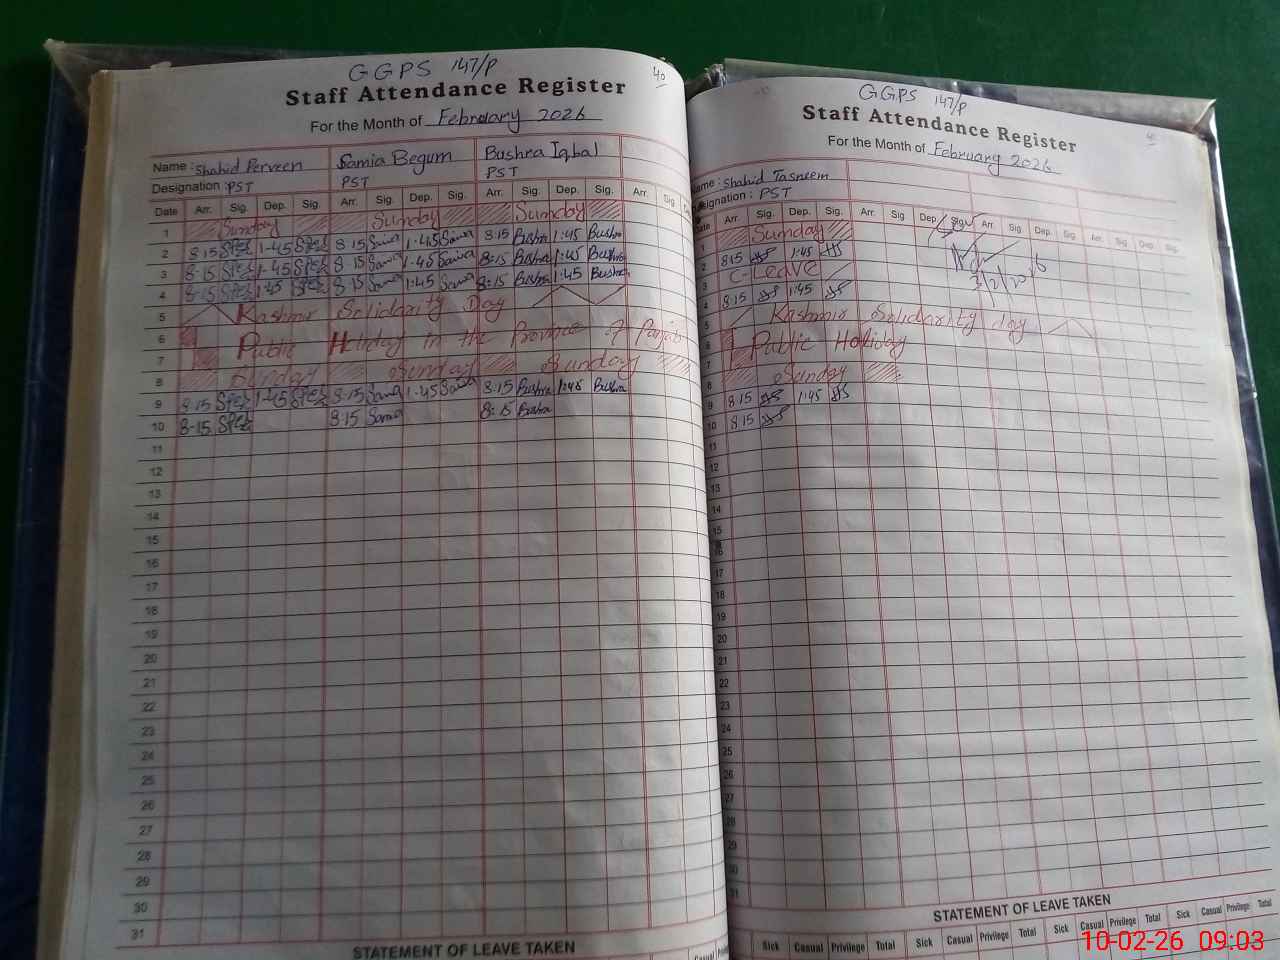 GGPS 147/P
40
Staff Attendance Register
For the Month of February 2026
Name : Shahid Perveen Samia Begum Bushra Iqbal
Designation : PST PST PST
Date Arr. Sig. Dep. Sig. Arr. Sig. Dep. Sig. Arr. Sig. Dep. Sig. Arr. Sig.
1 Sunday Sunday Sunday
2 8-15 1-45 8 15 Samia 1.45 Samia 8:15 Bushra 1:45 Bushra
3 8-15 1-45 8 15 Samia 1.45 Samia 8:15 Bushra 1:45 Bushra
4 8-15 1:45 8 15 Samia 1.45 Samia 8:15 Bushra 1:45 Bushra
5 Kashmir Solidarity Day
6 Public Holiday in the Province of Punjab
7
8 Sunday Sunday Sunday
9 8.15 1-45 8.15 Samia 1.45 Samia 8.15 Bushra 1:45 Bushra
10 8-15 8.15 Samia 8:15 Bushra
11
12
13
14
15
16
17
18
19
20
21
22
23
24
25
26
27
28
29
30
31
STATEMENT OF LEAVE TAKEN
Casual Privilege
GGPS 147/P
Staff Attendance Register
For the Month of February 2026
Name : Shahid Tasneem
Designation : PST
Date Arr. Sig. Dep. Sig. Arr. Sig. Dep. Sig. Arr. Sig. Dep. Sig. Arr. Sig. Dep. Sig.
1 Sunday
2 8 15 1:45
3 C-Leave
3/2/2026
4 8 15 1:45
5 Kashmir Solidarity day
6 Public Holiday
7
8 Sunday
9 8 15 1:45
10 8 15
11
12
13
14
15
16
17
18
19
20
21
22
23
24
25
26
27
28
29
30
31
STATEMENT OF LEAVE TAKEN
Sick Casual Privilege Total Sick Casual Privilege Total Sick Casual Privilege Total Sick Casual Privilege Total
10-02-26 09:03